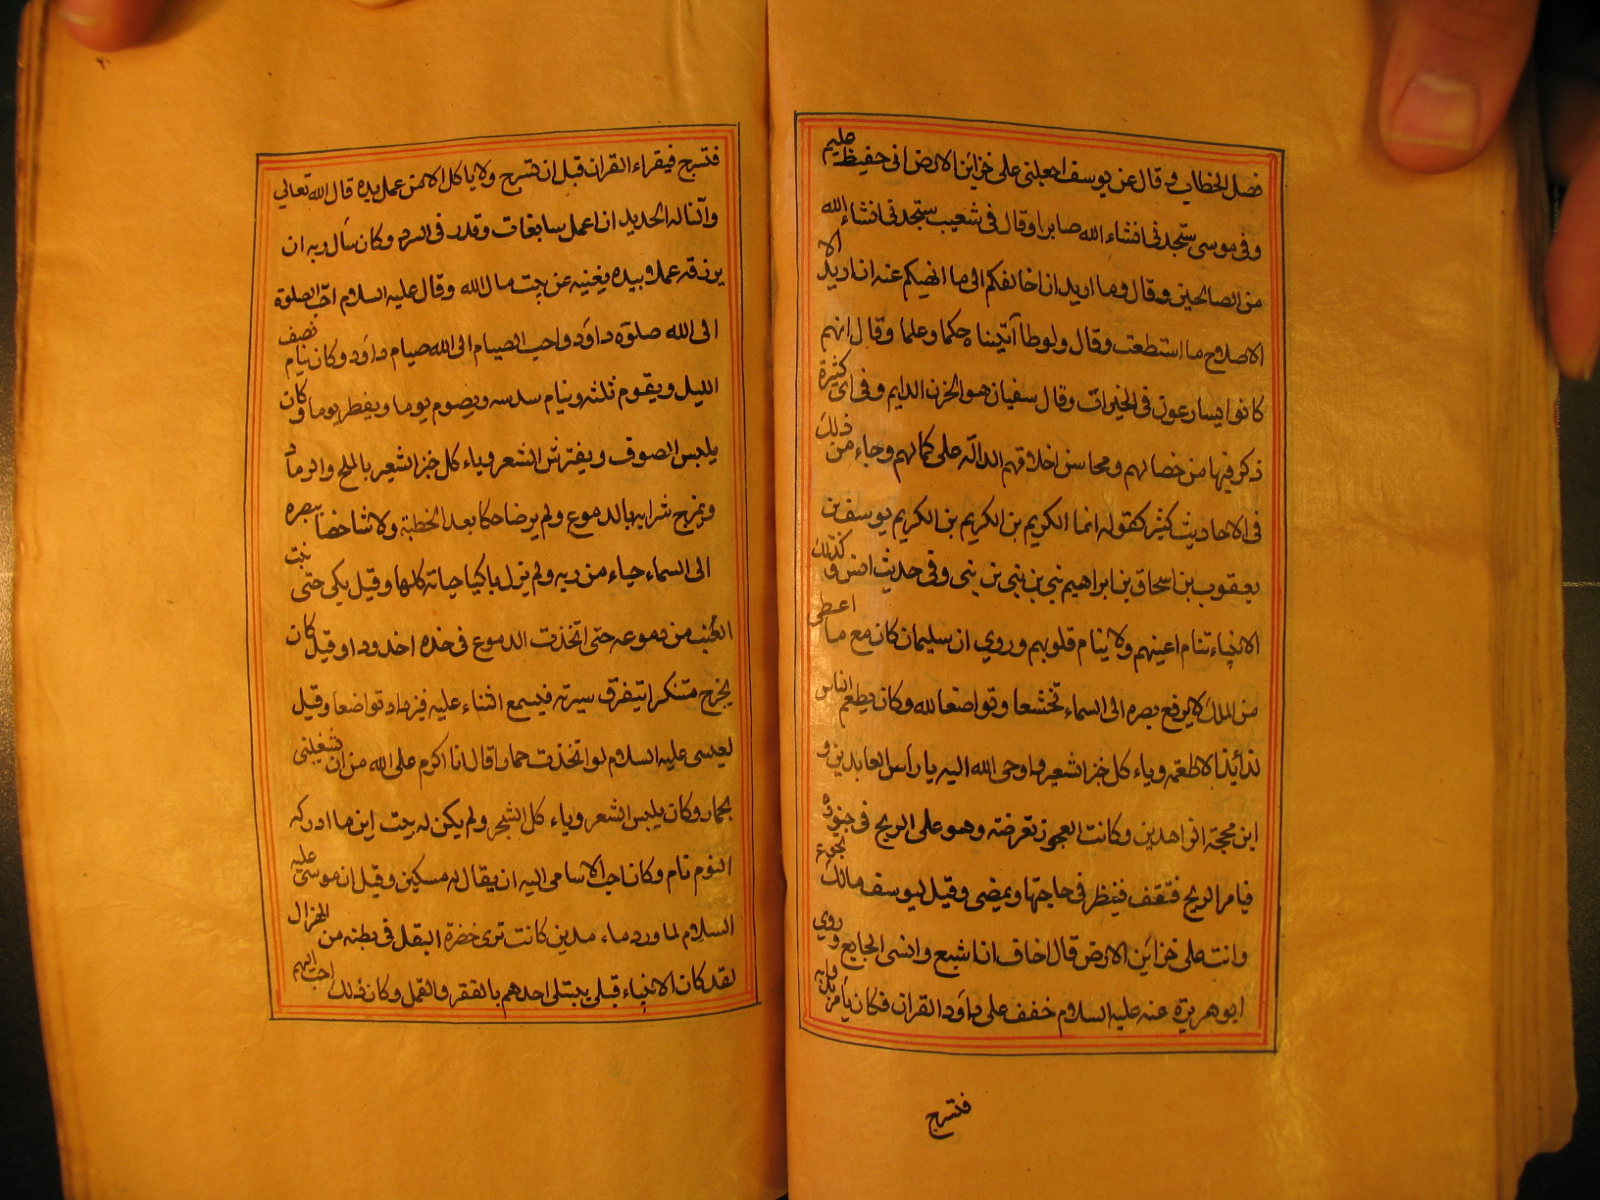 فصل الخطاب وقال عن يوسف اجعلنى على خزائن الارض انى حفيظ عليم
وفى موسى ستجدنى انشاء الله صابرا وقال فى شعيب ستجدنى انشاء الله
من الصالحين وقال وما اريد ان اخالفكم الى ما انهيكم عنه ان اريد الا
الاصلاح ما استطعت وقال ولوطا آتيناه حكما وعلما وقال انهم
كانوا يسارعون فى الخيرات وقال سفيان هو الحزن الدايم وفى اى كثيرة
ذكر فيها من خصالهم ومحاسن اخلاقهم الدالة على كمالهم وجاء من ذلك
فى الاحاديث كثير كقوله انما الكريم بن الكريم بن الكريم يوسف بن
يعقوب بن اسحاق بن ابراهيم نبى بن نبى بن نبى وفى حديث انس وكذلك
الانبياء تنام اعينهم ولا ينام قلوبهم وروي ان سليمان كان مع ما اعطى
من الملك لا يرفع بصره الى السماء تخشعا وتواضعا لله وكان يطعم الناس
لذائذ الاطعمة وياءكل خبز الشعير واوحى الله اليه يا راس العابدين و
ابن محجة الزاهدين وكانت العجوز تعرضه وهو على الريح فى جنوده
فيامر الريح فتقف فينظر فى حاجتها ويمضى وقيل ليوسف مالك تجوع
وانت على خزاين الارض قال اخاف ان اشبع وانسى الجايع وروي
ابوهريرة عنه عليه السلام خفف على داود القران فكان يامر بدابه
فتسرج
فتسرج فيقراء القران قبل ان تسرج ولا ياكل الا من عمل يده قال الله تعالي
والنا له الحديد ان اعمل سابغات وقدر فى السرد وكان سأل ربه ان
يرزقه عملا بيده يغنيه عن بيت مال الله وقال عليه السلام احب الصلوة
الى الله صلوة داود واحب الصيام الى الله صيام داود وكان ينام نصف
الليل ويقوم ثلثه وينام سدسه ويصوم يوما ويفطر يوما وكان
يلبس الصوف ويفترش الشعر وياءكل خبز الشعير بالملح والرماد
ويمزج شرابه بالدموع ولم ير ضاحكا بعد الخطية ولا شاخصا ببصره
الى السماء حياء من ربه ولم يزل باكيا حياته كلها وقيل بكى حتى نبت
العشب من دموعه حتى اتخذت الدموع فى خده اخدودا وقيل كان
يخرج متنكرا يتفرق سيرته فيسمع الثناء عليه فزداد تواضعا وقيل
لعيسى عليه السلام لو اتخذت حمارا قال انا اكرم على الله من ان تشغلنى
بحمار وكان يلبس الشعر وياءكل الشجر ولم يكن له بيت اين ما ادركه
النوم نام وكان احب الاسامى اليه ان يقال له مسكين وقيل ان موسى عليه
السلام لما ورد ماء مدين كانت ترى خضرة البقل فى بطنه من الهزال
لقد كان الانبياء قبلى يبتلى احدهم بالفقر والقمل وكان ذلك احب اليهم